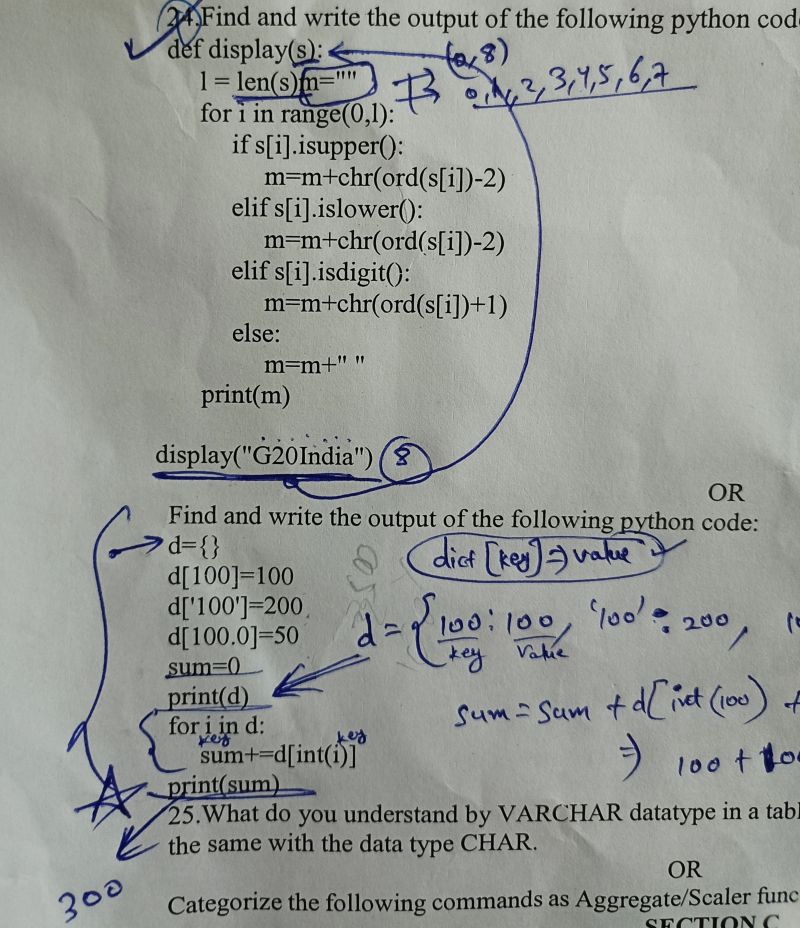 24.Find and write the output of the following python cod
def display(s): (0,8)
l = len(s)m="" 0,1,2,3,4,5,6,7
for i in range(0,l):
if s[i].isupper():
m=m+chr(ord(s[i])-2)
elif s[i].islower():
m=m+chr(ord(s[i])-2)
elif s[i].isdigit():
m=m+chr(ord(s[i])+1)
else:
m=m+" "
print(m)
display("G20India") 8
OR
Find and write the output of the following python code:
d={} dict [key] => value
d[100]=100
d['100']=200
d[100.0]=50 d = { 100 : 100, '100' : 200, 10
key value
sum=0
print(d)
for i in d: sum = sum + d[int(100) +
key key
sum+=d[int(i)] => 100 + 100
print(sum)
25.What do you understand by VARCHAR datatype in a tabl
the same with the data type CHAR.
300
OR
Categorize the following commands as Aggregate/Scaler func
SECTION C